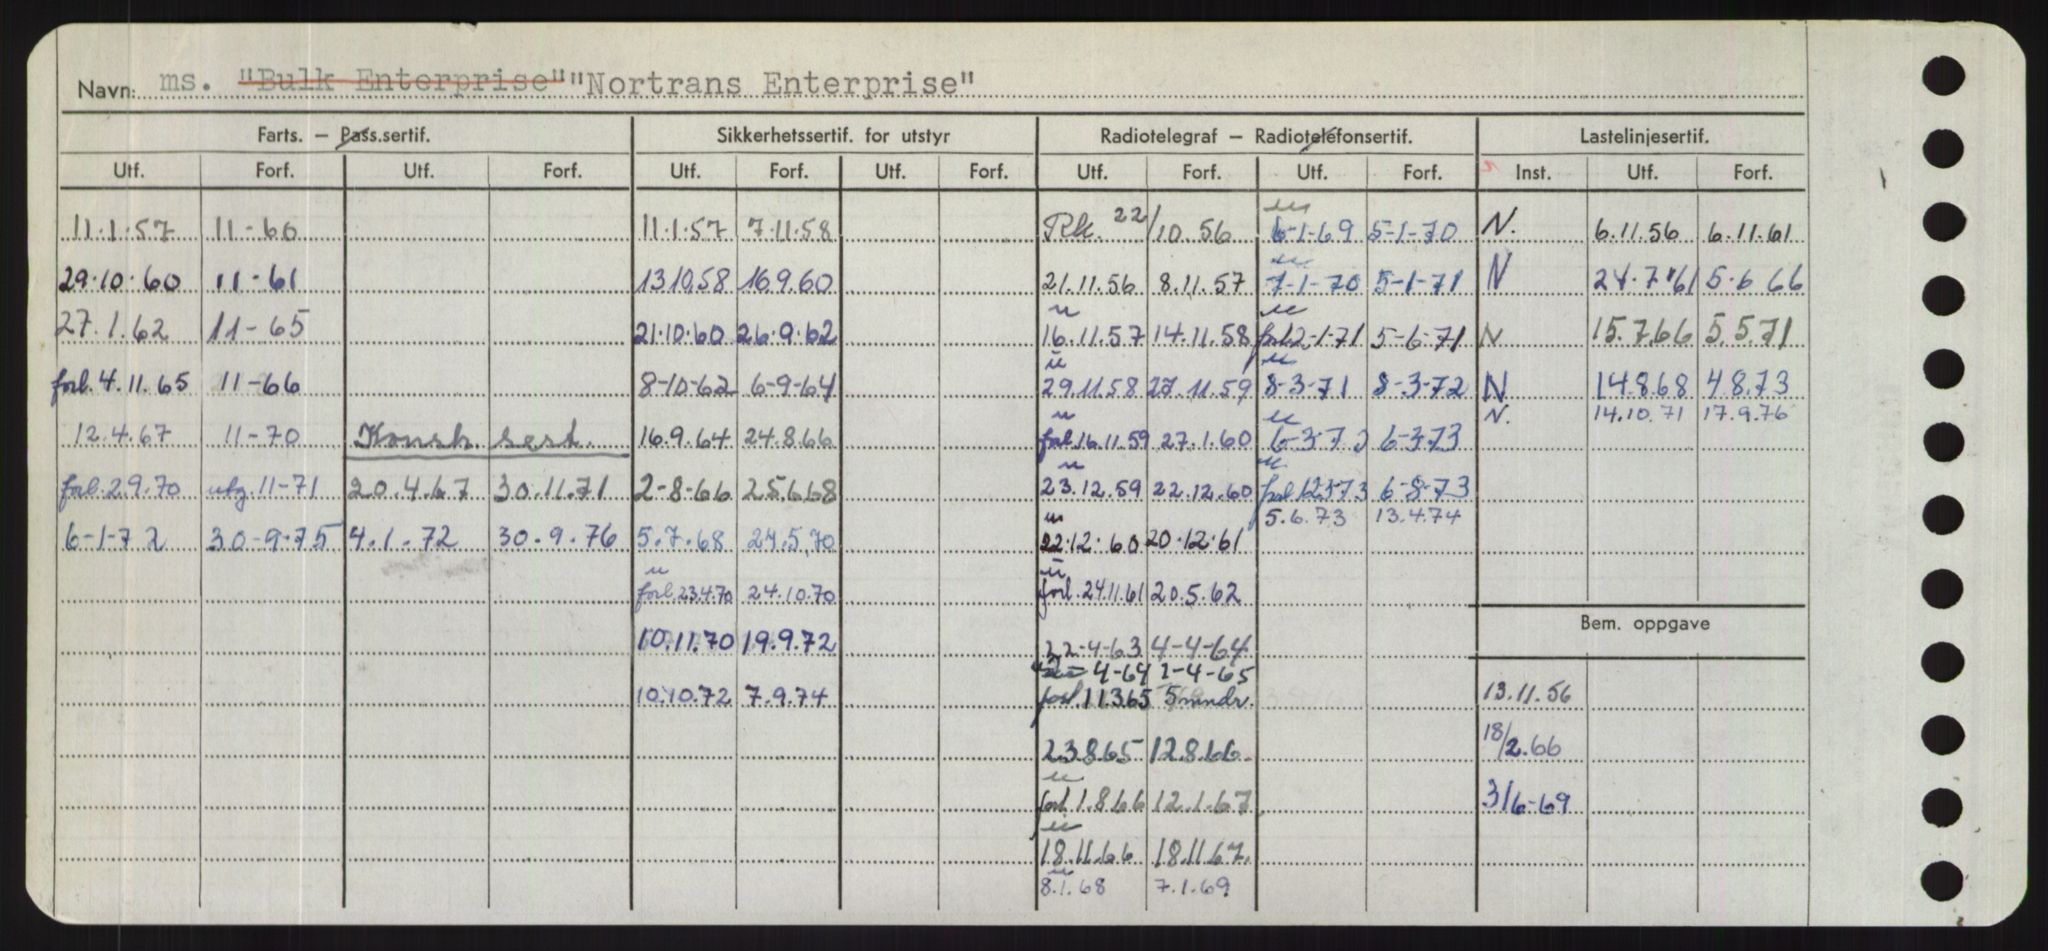 Navn: ms. "Bulk Enterprise" "Nortrans Enterprise"
Farts. — Pass.sertif. Sikkerhetssertif. for utstyr Radiotelegraf — Radiotelefonsertif. Lastelinjesertif.
Utf. Forf. Utf. Forf. Utf. Forf. Utf. Forf. Utf. Forf. Utf. Forf. Inst. Utf. Forf.
11.1.57 11-60 11.1.57 7.11.58 22/10.56 6-1-69 5-1-70 N. 6.11.56 6.11.61
29.10.60 11-61 13.10.58 16.9.60 21.11.56 8.11.57 7-1-70 5-1-71 N 24.7.61 5.6 66
27.1.62 11-65 21.10.60 26.9.62 16.11.57 14.11.58 forl. 2-1-71 5-6-71 N 15.7.66 5.5.71
forl. 4.11.65 11-66 8-10-62 6-9-64 29.11.58 27.11.59 8-3-71 8-3-72 N 14.8.68 4.8.73
N. 14.10.71 17.9.76
12.4.67 11-70 Konstr. sert. 16.9.64 24.8.66 forl. 16.11.59 27.1.60 6-3-72 6-3-73
forl. 2.9.70 utg. 11-71 20.4.67 30.11.71 2-8-66 25.6.68 23.12.59 22.12.60 forl. 12373 6-8-73
5.6.73 13.4.74
6-1-72 30-9-75 4.1.72 30.9.76 5.7.68 24.5.70 22.12.60 20.12.61
forl. 23.4.70 24.10.70 forl. 24.11.61 20.5.62
Bem. oppgave
10.11.70 19.9.72 22-4-63 4-4-64
4-64 1-4-65
10.10.72 7.9.74 forl. 11.3.65 5 mndr. 13.11.56
23.8.65 12.8.66 18/2.66
forl. 1.8.66 12.1.67 3/6-69
18.11.66 18.11.67.
8.1.68 7.1.69